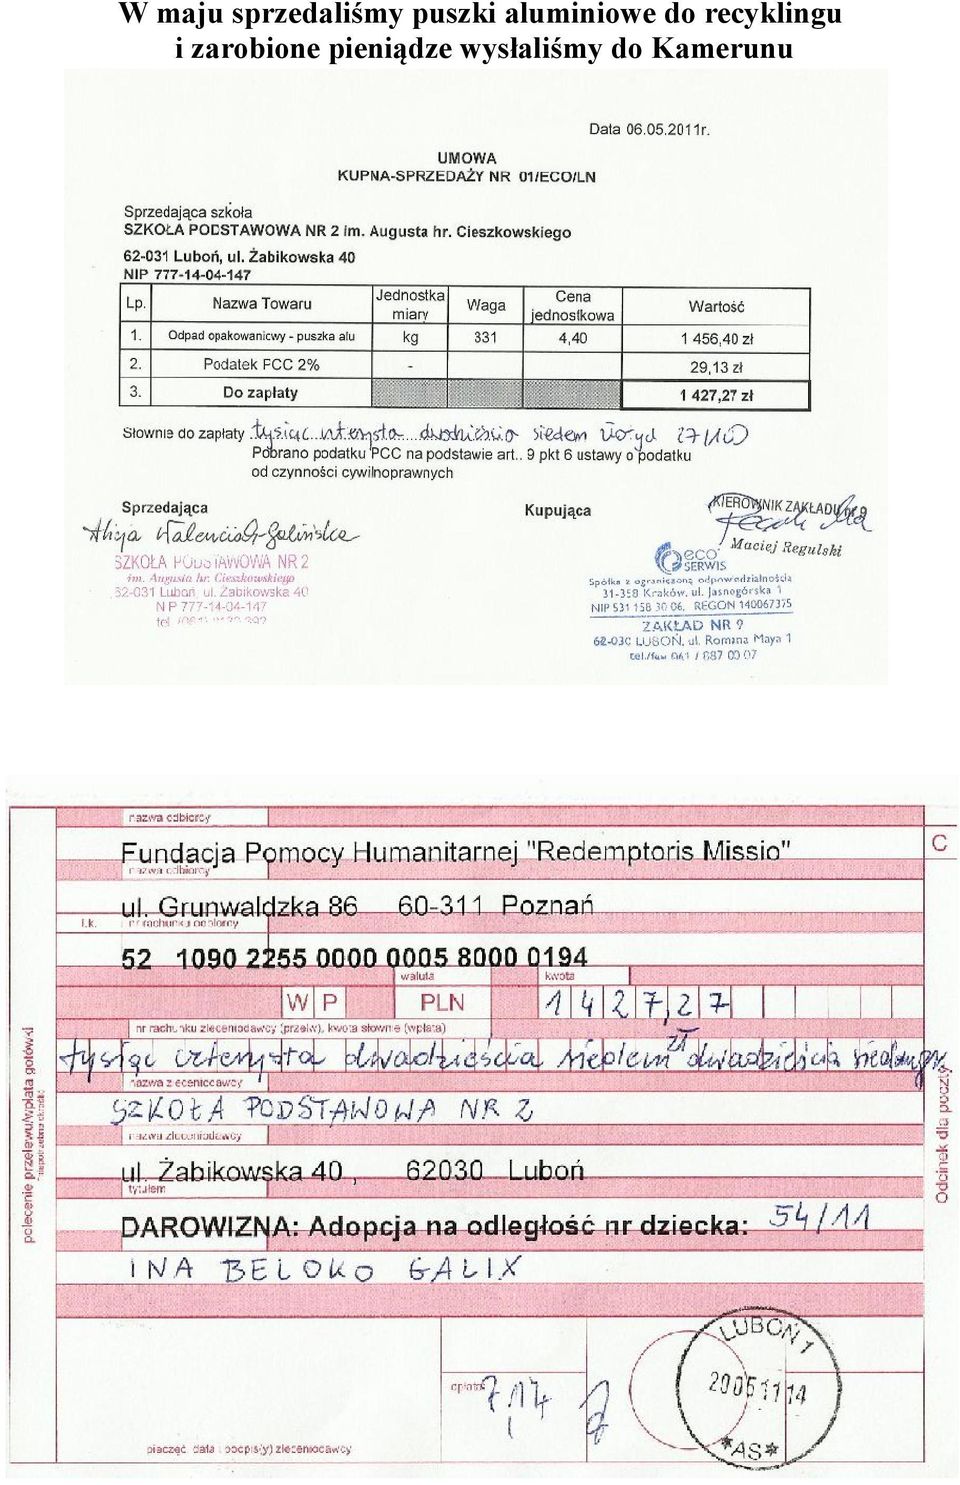 W maju sprzedaliśmy puszki aluminiowe do recyklingu
i zarobione pieniądze wysłaliśmy do Kamerunu
Data 06.05.2011r.
UMOWA
KUPNA-SPRZEDAŻY NR 01/ECO/LN
Sprzedająca szkoła
SZKOŁA PODSTAWOWA NR 2 im. Augusta hr. Cieszkowskiego
62-031 Luboń, ul. Żabikowska 40
NIP 777-14-04-147
Lp. Nazwa Towaru Jednostka miary Waga Cena jednostkowa Wartość
1. Odpad opakowaniowy - puszka alu kg 331 4,40 1 456,40 zł
2. Podatek PCC 2% - 29,13 zł
3. Do zapłaty 1 427,27 zł
Słownie do zapłaty tysiąc czterysta dwadzieścia siedem złotych 27/100
Pobrano podatku PCC na podstawie art.. 9 pkt 6 ustawy o podatku
od czynności cywilnoprawnych
Sprzedająca Kupująca KIEROWNIK ZAKŁADU nr 9
Maciej Regulski
SZKOŁA PODSTAWOWA NR 2
im. Augusta hr. Cieszkowskiego
62-031 Luboń, ul. Żabikowska 40
NIP 777-14-04-147
eco SERWIS
Spółka z ograniczoną odpowiedzialnością
31-358 Kraków, ul. Jasnogórska 1
NIP 531 158 30 06, REGON 140067375
ZAKŁAD NR 9
62-030 LUBOŃ, ul. Romana Maya 1
tel./fax 061 / 887 00 07
nazwa odbiorcy
Fundacja Pomocy Humanitarnej "Redemptoris Missio"
nazwa odbiorcy
ul. Grunwaldzka 86 60-311 Poznań
l.k. nr rachunku odbiorcy
52 1090 2255 0000 0005 8000 0194
waluta kwota
W P PLN 1427,27
nr rachunku zleceniodawcy (przelew), kwota słownie (wpłata)
tysiąc czterysta dwadzieścia siedem zł dwadzieścia siedem gr
nazwa zleceniodawcy
SZKOŁA PODSTAWOWA NR 2
nazwa zleceniodawcy
ul. Żabikowska 40 , 62030 Luboń
tytułem
DAROWIZNA: Adopcja na odległość nr dziecka: 54/11
INA BELOKO GALIX
opłata 7,14
pieczęć, data i podpis(y) zleceniodawcy
LUBOŃ 1
200511 14
*AS*
polecenie przelewu/wpłata gotówki
C
Odcinek dla poczty